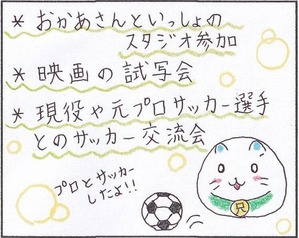 * おかあさんといっしょの
スタジオ参加
* 映画の試写会
* 現役や元プロサッカー選手
とのサッカー交流会
プロとサッカー
したよ!!